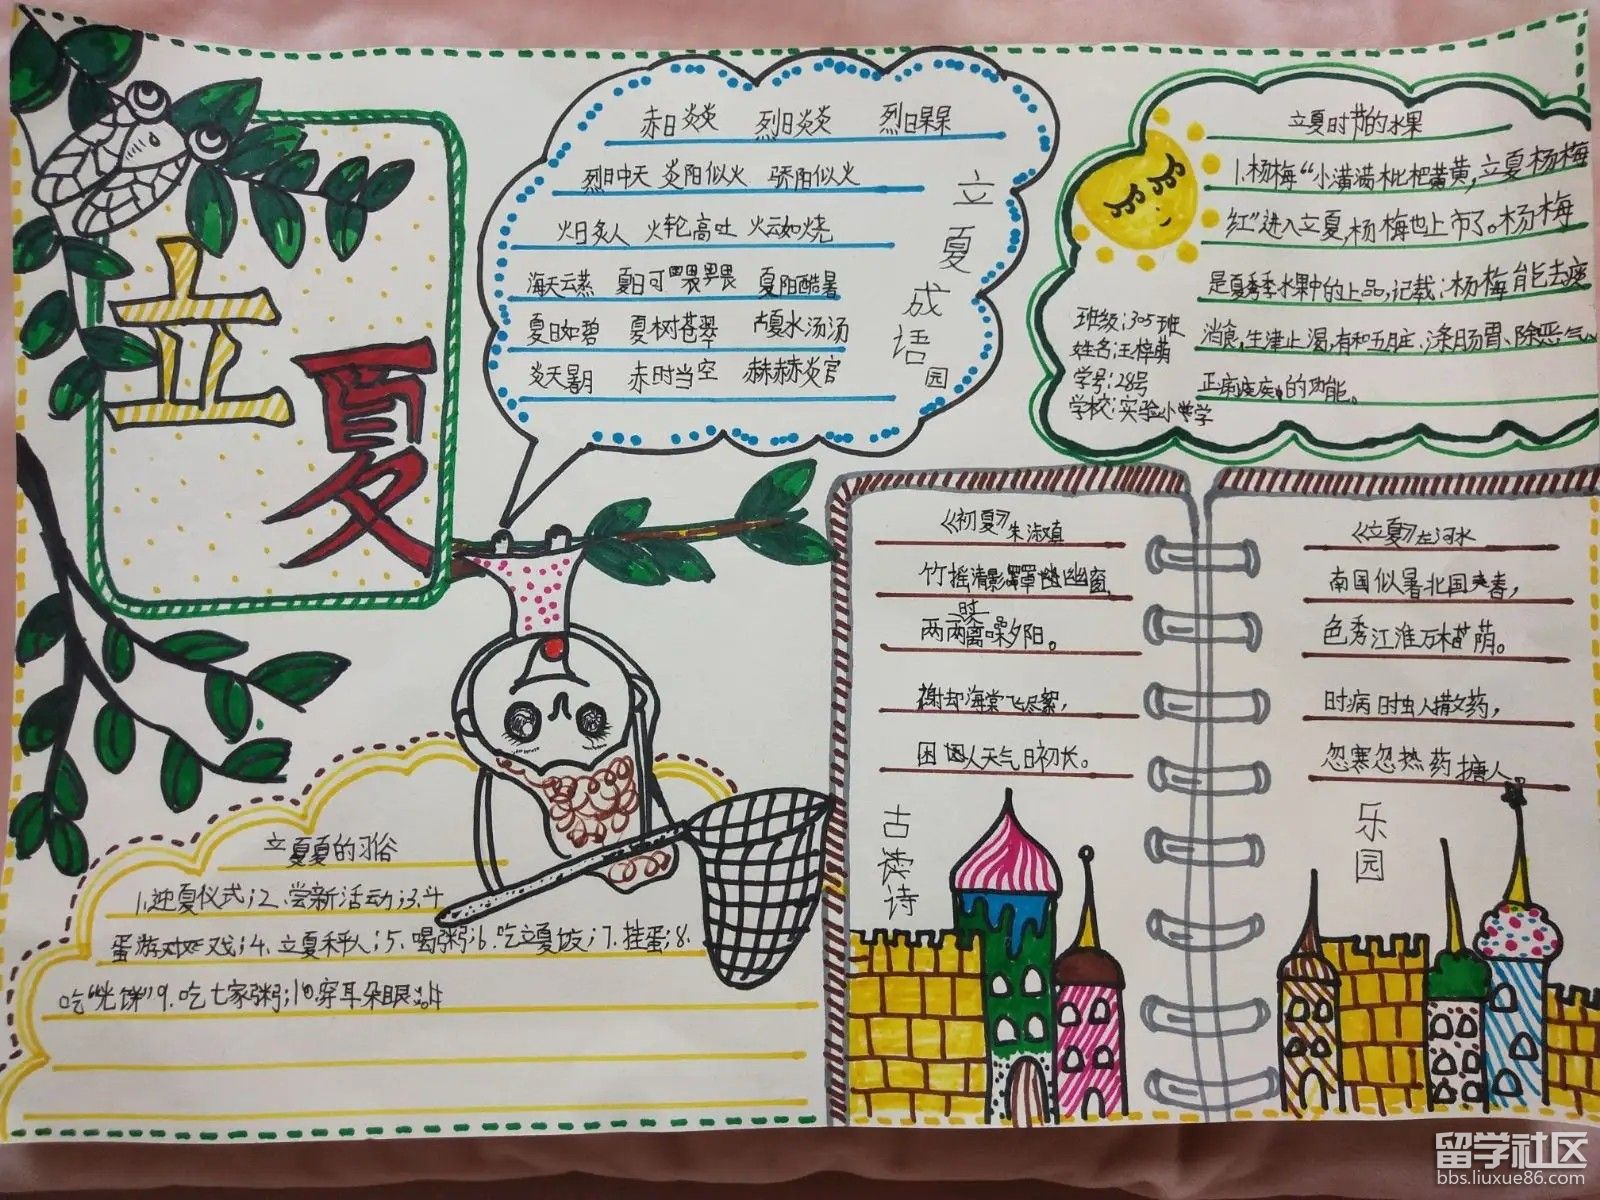 立
夏
赤日炎炎 烈日炎炎 烈日杲杲
烈日中天 炎阳似火 骄阳似火
火日炙人 火轮高吐 火云如烧
海天云蒸 夏日可畏畏 夏阳酷暑
夏日如碧 夏树苍翠 夏水汤汤
炎天暑月 赤时当空 赫赫炎官
立夏成语园
立夏时节的水果
1.杨梅“小满满枇杷黄黄,立夏杨梅
红”进入立夏,杨梅也上市了。杨梅
是夏季水果中的上品,记载:杨梅能去痰
消食,生津止渴,有和五月庄、涤肠胃、除恶气
的功能。
班级:305班
姓名:王梓萌
学号:28号
学校:实验小学
《初夏》朱淑真
竹摇清影罩幽窗
两两时离噪夕阳。
谢却海棠飞尽絮,
困人天气日初长。
古诗
《立夏》左河水
南国似暑北国春,
色秀江淮万木荫。
时病时虫人撒药,
忽寒忽热药搪人。
乐园
立夏夏的习俗
1.迎夏仪式;2.尝新活动;3.斗
蛋游戏;4.立夏秤人;5.喝粥;6.吃立夏饭;7.挂蛋;8.
吃“光饼”9.吃七家粥;10穿耳朵眼
留学社区
bbs.liuxue86.com